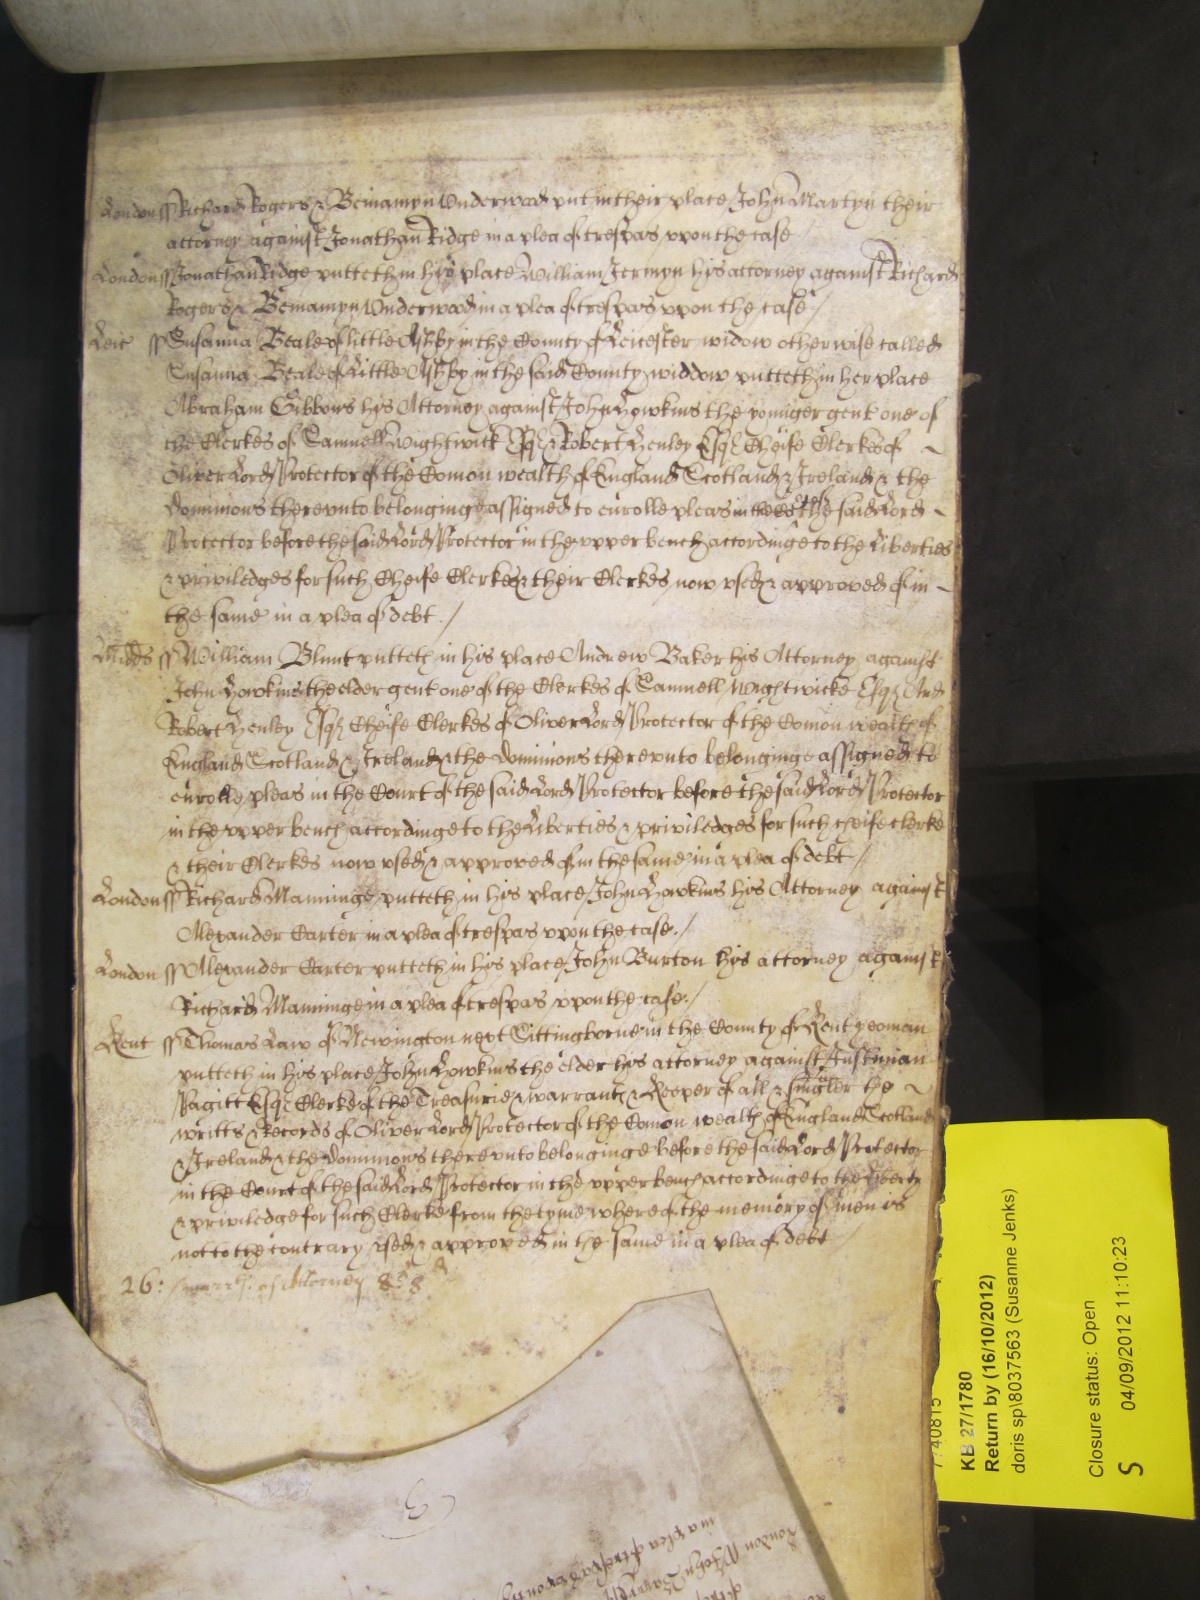 London ss Richard Rogers & Beniamyn Underwood put in their place John Martyn their
attorney against Jonathan Ridge in a plea of trespas upon the case
London ss Jonathan Ridge putteth in his place William Jermyn his attorney against Richard
Rogers & Beniamyn Underwood in a plea of trespas upon the case /
Leic ss Susanna Beale of little Ashby in the County of Leicester widow otherwise called
Susanna Beale of Little Ashby in the said County widdow putteth in her place
Abraham Gibbons his Attorney against John Hawkins the younger gent one of
the Clerkes of Samuell Wightwick Esqr & Robert Henley Esqr Cheife Clerkes of
Oliver Lord Protector of the Comon wealth of England Scotland & Ireland & the
Dominions thereunto belonginge assigned to enrolle pleas in the said Lord
Protector before the said Lord Protector in the upper bench accordinge to the Liberties
& priviledges for such Cheife Clerkes & their Clerkes now used & approved of in
the same in a plea of debt /
Midds ss William Blunt putteth in his place Andrew Baker his Attorney against
John Hawkins the elder gent one of the Clerkes of Samuell Wightwicke Esqr And
Robert Henley Esqr Cheife Clerkes of Oliver Lord Protector of the Comon wealth of
England Scotland & Ireland & the Dominions thereunto belonginge assigned to
enrolle pleas in the Court of the said Lord Protector before the said Lord Protector
in the upper bench accordinge to the Liberties & priviledges for such cheife clerke
& their Clerkes now used & approved of in the same in a plea of debt /
London ss Richard Manninge putteth in his place John Hawkins his Attorney against
Alexander Carter in a plea of trespas upon the case /
London ss Alexander Carter putteth in his place John Burton his attorney against
Richard Manninge in a plea of trespas upon the case /
Kent ss Thomas Law of Newington next Sittingborne in the County of Kent yeoman
putteth in his place John Hawkins the elder his attorney against Justinian
Pagitt Esqr Clerke of the Treasurie & warrants & Keeper of all & singler the
writts & Records of Oliver Lord Protector of the Comon wealth of England Scotland
& Ireland & the Dominions thereunto belonginge before the said Lord Protector
in the Court of the said Lord Protector in the upper bench accordinge to the Liberty
& priviledge for such Clerke from the tyme whereof the memory of men is
not to the contrary used & approved in the same in a plea of debt
26:
KB 27/1780
Return by (16/10/2012)
doris sp\8037563 (Susanne Jenks)
Closure status: Open
S 04/09/2012 11:10:23
in a plea of trespas upon the
London